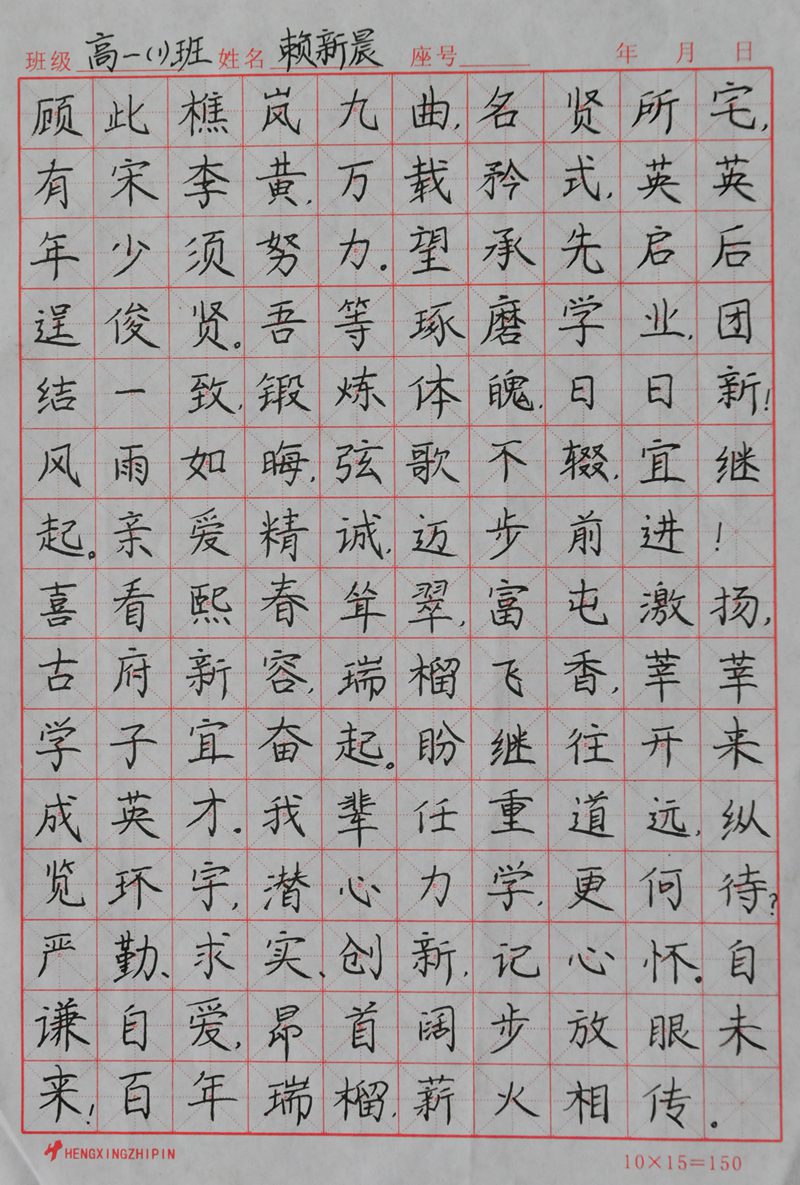 班级 高一(1)班 姓名 赖新晨 座号 年 月 日
顾此樵岚九曲,名贤所宅,
有宋李黄,万载矜式,英英
年少须努力。望承先启后
逞俊贤。吾等琢磨学业,团
结一致,锻炼体魄,日日新!
风雨如晦,弦歌不辍,宜继
起。亲爱精诚,迈步前进!
喜看熙春耸翠,富屯激扬,
古府新容,瑞榴飞香,莘莘
学子宜奋起。盼继往开来
成英才。我辈任重道远,纵
览环宇,潜心力学,更何待?
严勤、求实、创新,记心怀。自
谦自爱,昂首阔步放眼未
来!百年瑞榴,薪火相传。
HENGXINGZHIPIN 10×15=150